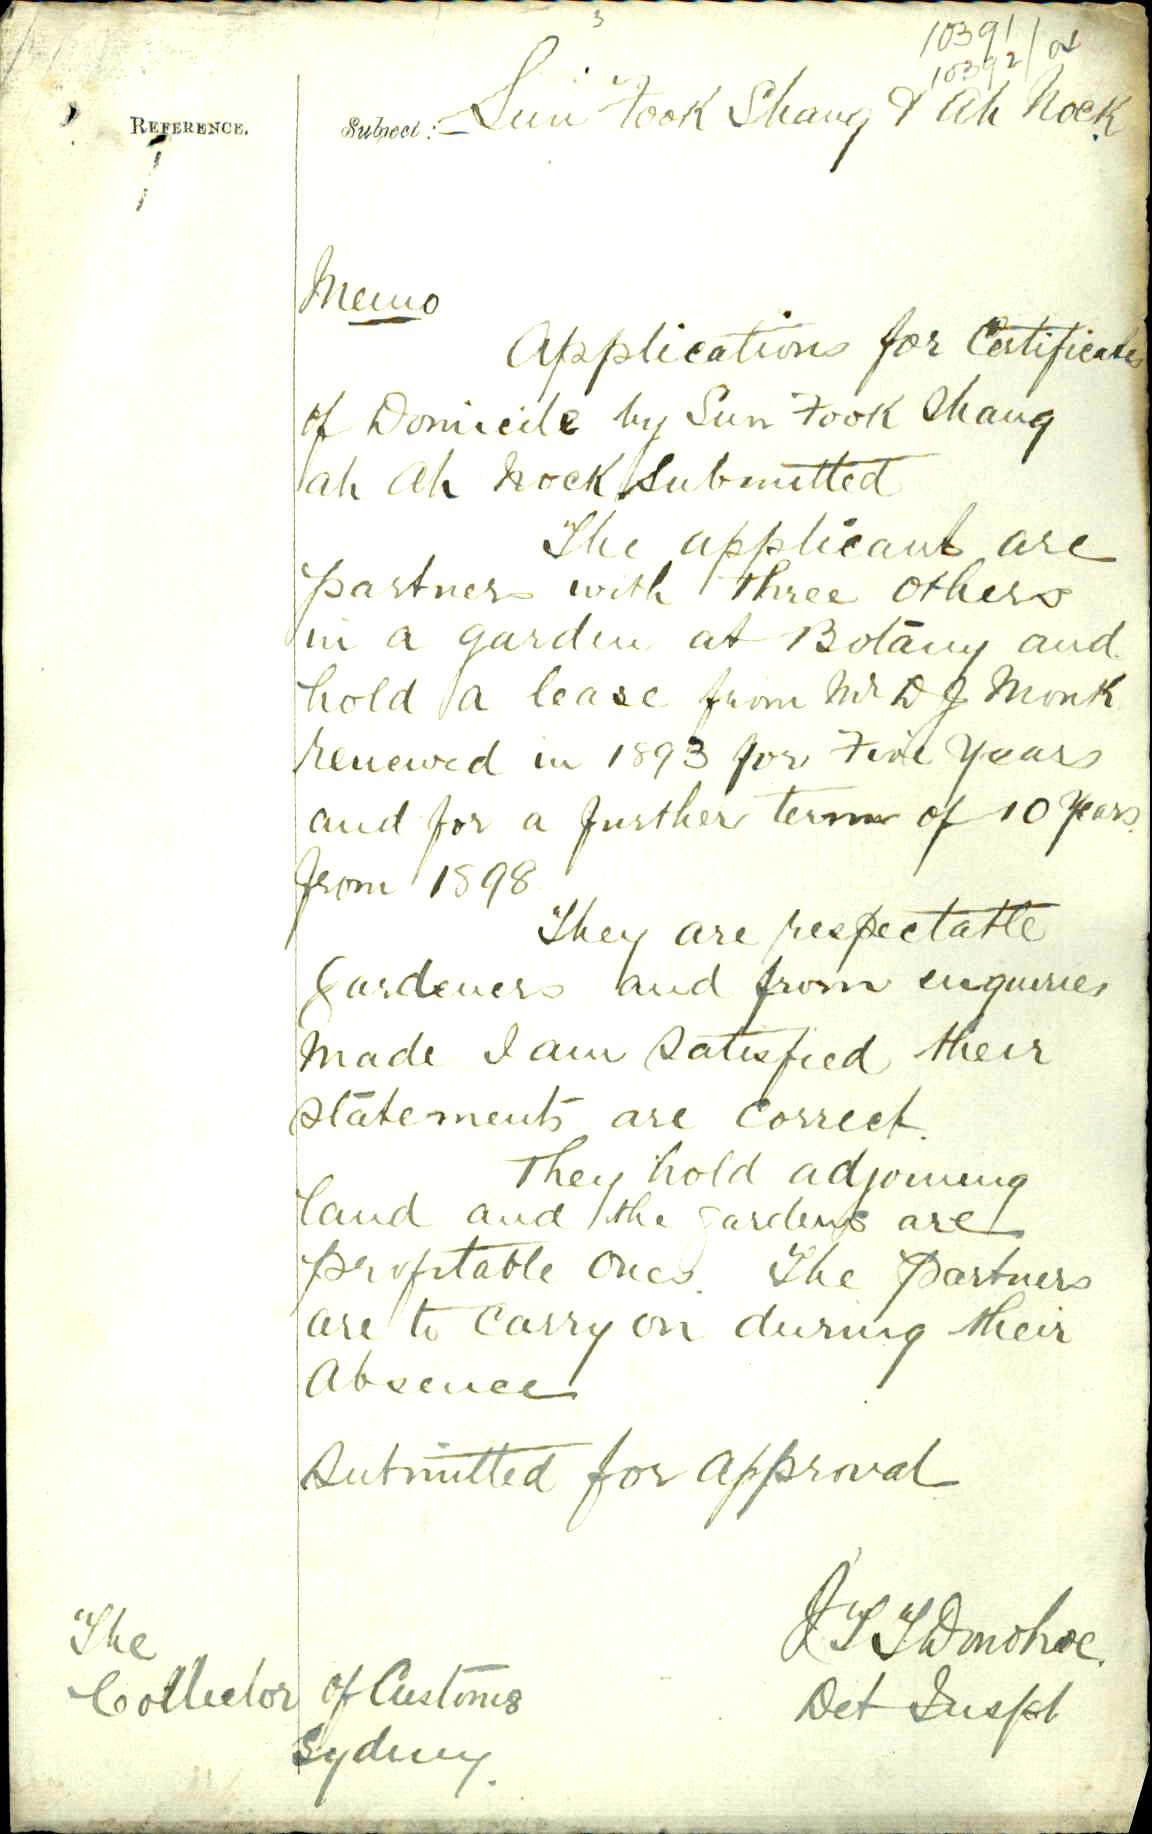 3
10391
10392/02
REFERENCE.
Subject:- Sun Fook Shang & Ah Nock
Memo
Applications for Certificates
of Domicile by Sun Fook Shang
ah Ah Nock Submitted
The applicants are
partners with three others
in a garden at Botany and
hold a lease from Mr D J Monk
renewed in 1893 for Five Years
and for a further term of 10 Years
from 1898
They are respectable
Gardeners and from enquiries
made I am satisfied their
statements are correct.
They hold adjoining
land and the gardens are
profitable ones. The Partners
are to carry on during their
absence
Submitted for approval
J T T Donohoe.
Det Inspt
The
Collector of Customs
Sydney.